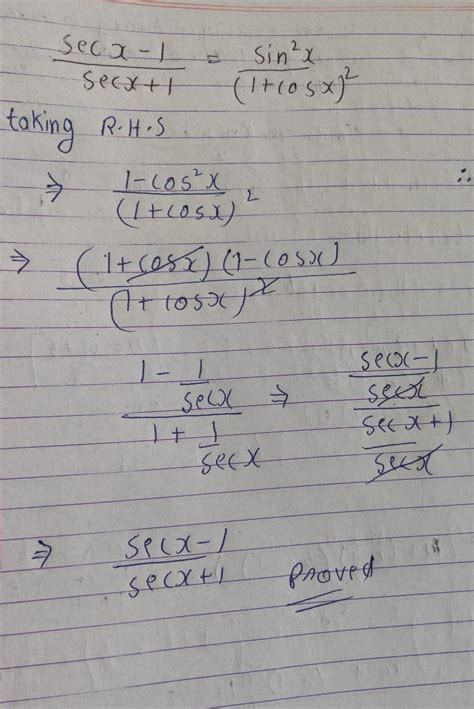 (sec x - 1)/(sec x + 1) = sin²x/(1 + cos x)²
taking R.H.S
⇒ (1 - cos²x)/(1 + cos x)² ∴
⇒ (1 + cos x)(1 - cos x)/(1 + cos x)²
(1 - 1/sec x)/(1 + 1/sec x) ⇒ ((sec x - 1)/sec x)/((sec x + 1)/sec x)
⇒ (sec x - 1)/(sec x + 1) Proved